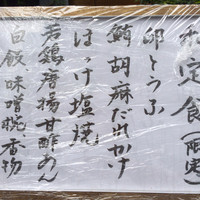 定食
卵とうふ
鮪胡麻だれかけ
ほっけ塩焼
若鶏唐揚甘酢あん
白飯 味噌椀 香物